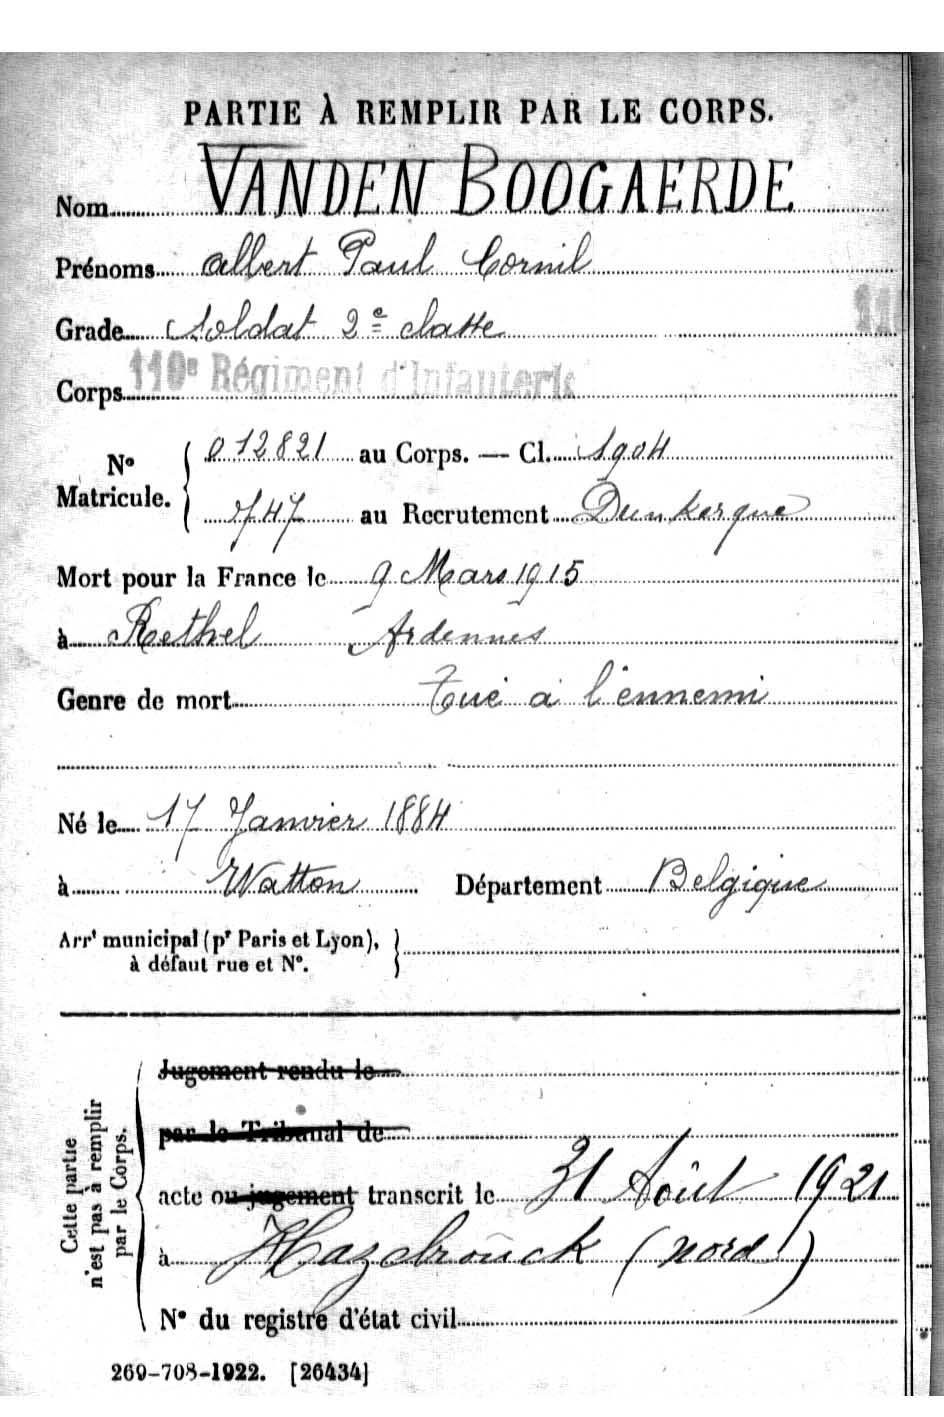 PARTIE À REMPLIR PAR LE CORPS.
Nom VANDEN BOOGAERDE
Prénoms albert Paul Cornil
Grade Soldat 2e classe
11
Corps 110e Régiment d'Infanterie
No Matricule. 012821 au Corps. — Cl. 1904
747 au Recrutement Dunkerque
Mort pour la France le 9 Mars 1915
à Rethel Ardennes
Genre de mort Tué à l'ennemi
Né le 17 Janvier 1884
à Watton Département Belgique
Arrt municipal (pr Paris et Lyon),
à défaut rue et No.
Cette partie
n'est pas à remplir
par le Corps.
Jugement rendu le
par le Tribunal de
acte ou jugement transcrit le 31 Août 1921
à Hazebrouck (nord)
No du registre d'état civil
269-708-1922. [26434]